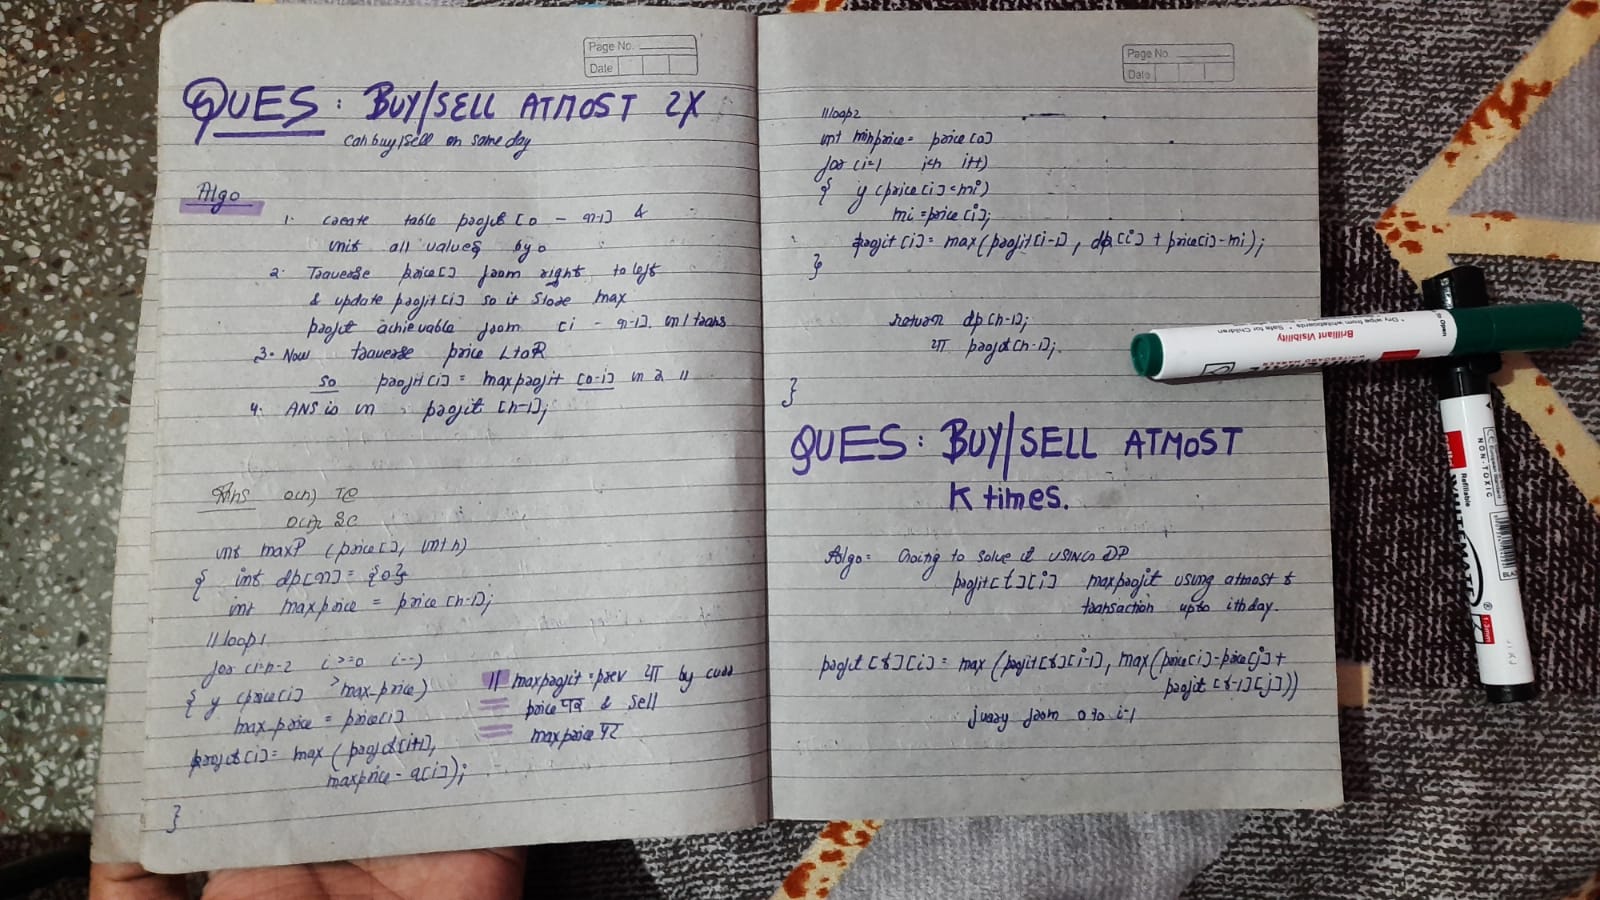 Page No.
Date
QUES : BUY/SELL ATMOST 2X
can buy/sell on same day
Algo
1. create table profit [0 - n-1] &
init all values by 0
2. Traverse price[] from right to left
& update profit[i] so it store max
profit achievable from [i - n-1] in 1 trans
3. Now traverse price L to R
so profit[i] = maxprofit [0-i] in 2 11
4. ANS is in profit [n-1];
Ans O(n) TC
O(n) SC
int maxP (price[], int n)
{ int dp[n] = {0};
int maxprice = price[n-1];
//loop1
for (i=n-2 i>=0 i--)
{ if (price[i] > max_price)
max_price = price[i]
profit[i] = max (profit[i+1],
maxprice - a[i]);
}
// maxprofit = prev या by curr
price पर & sell
maxprice पर
Page No.
Date
//loop2
int minprice = price[0]
for (i=1 i<n i++)
{ if (price[i] < mi)
mi = price[i];
profit[i] = max(profit[i-1], dp[i] + price[i]-mi);
}
return dp[n-1];
या profit[n-1];
}
QUES : BUY/SELL ATMOST
K times.
Algo = Going to solve it USING DP
profit[t][i] maxprofit using atmost t
transaction upto ith day.
profit[t][i] = max (profit[t][i-1], max(price[i]-price[j] +
profit [t-1][j]))
j vary from 0 to i-1
Brilliant Visibility
Dry wipe from whiteboards * Safe for Children
Open
WHITEMATE
Refillable
NON-TOXIC
1-3mm